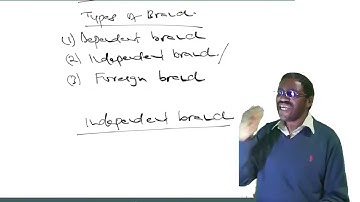 Types of Brand.
(1) Dependent brand
(2) Independent brand /
(3) Foreign brand
Independent brand